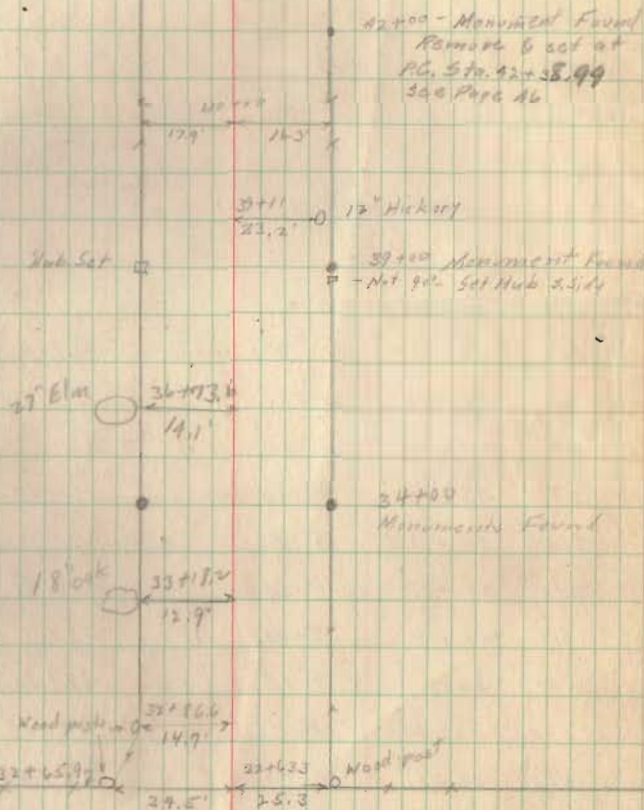 42+00 - Monument Found
Remove & set at
P.C. Sta. 42+38.99
See Page 46
17.9' 16.3'
39+11
23.2' 12" Hickory
Hub Set
39+00 Monument Found
- Not 90° Set Hub S. Side
27" Elm 36+73.6
14.1'
34+00
Monuments Found
18" oak 33+18.2
12.9'
Wood posts 32+86.6
14.7'
32+65.9 32+63.3 Wood post
24.5' 25.3